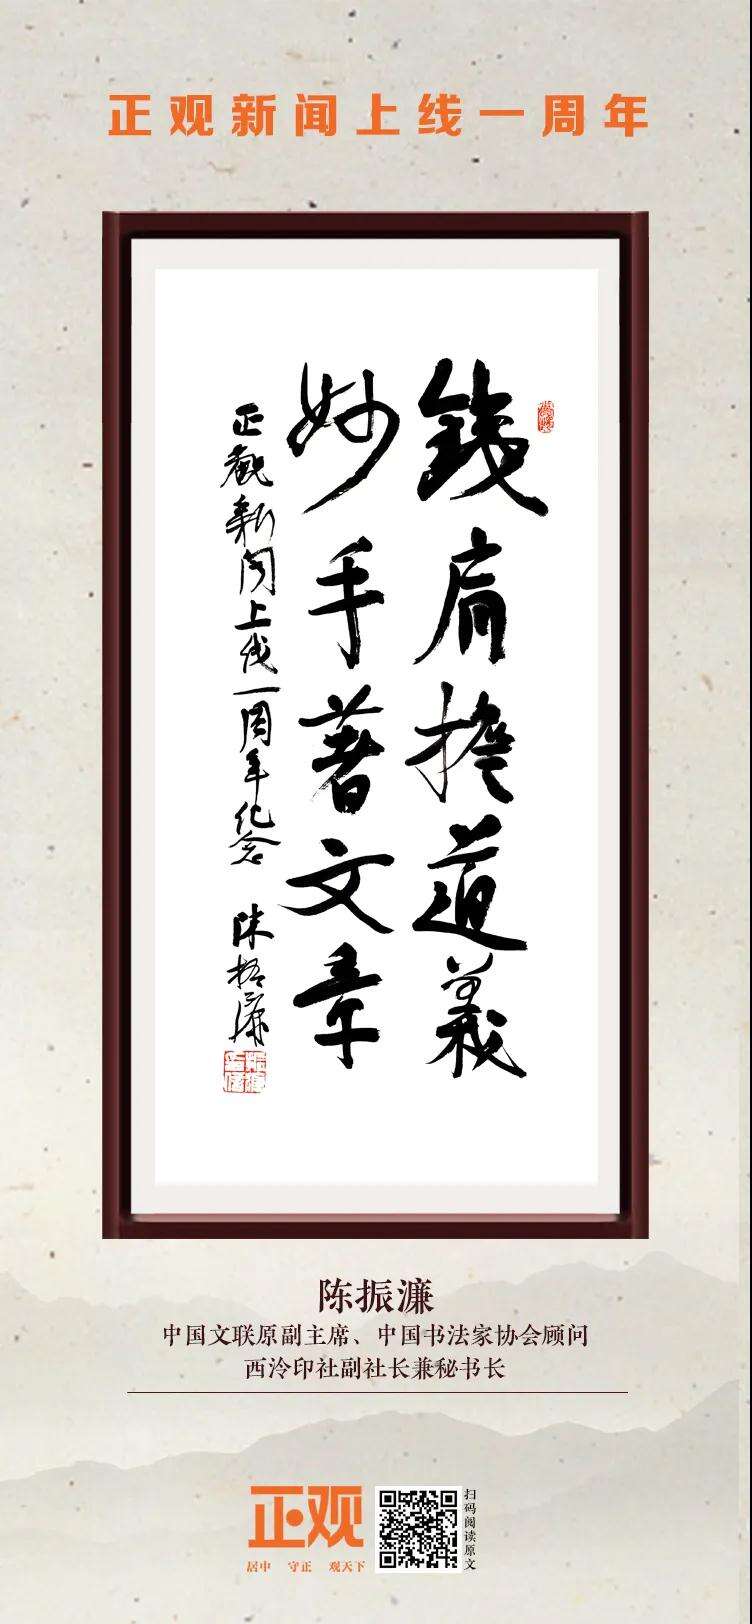 正观新闻上线一周年
銕肩担道義
妙手著文章
正觀新闻上线一周年纪念 陈振濂
陈振濂
中国文联原副主席、中国书法家协会顾问
西泠印社副社长兼秘书长
正观
居中 守正 观天下
扫码阅读原文